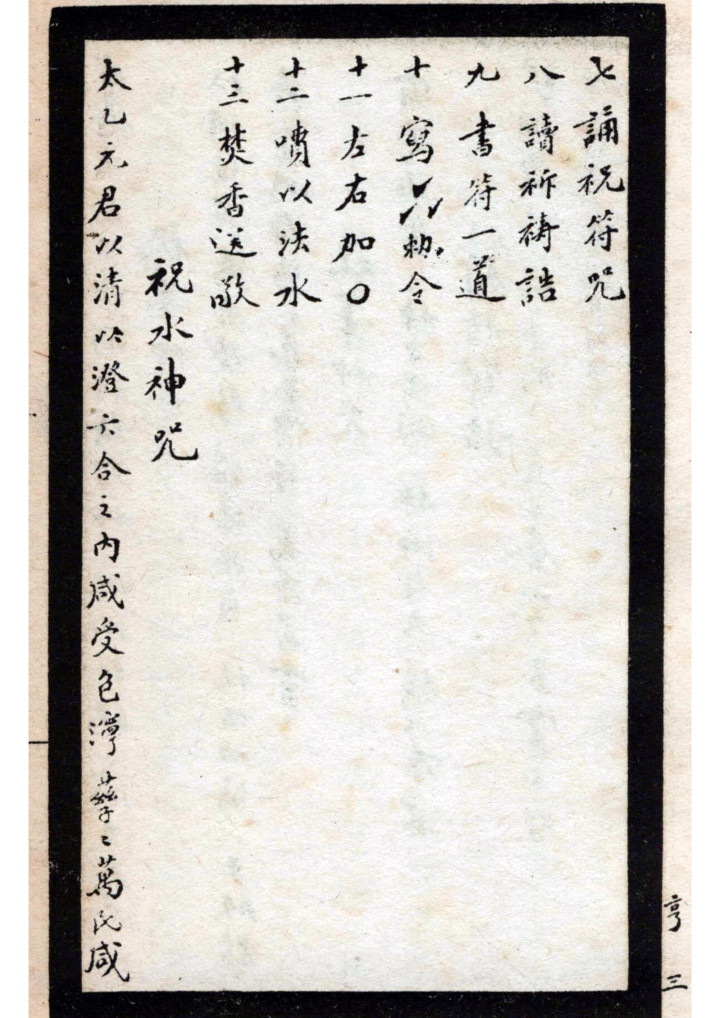 七 誦祝符咒
八 讀祈禱誥
九 書符一道
十 寫 勅令
十一左右加〇
十二噴以法水
十三焚香送敬
祝水神咒
太乙元君以清以澄六合之内咸受包濘孳〻萬民咸
亨 三